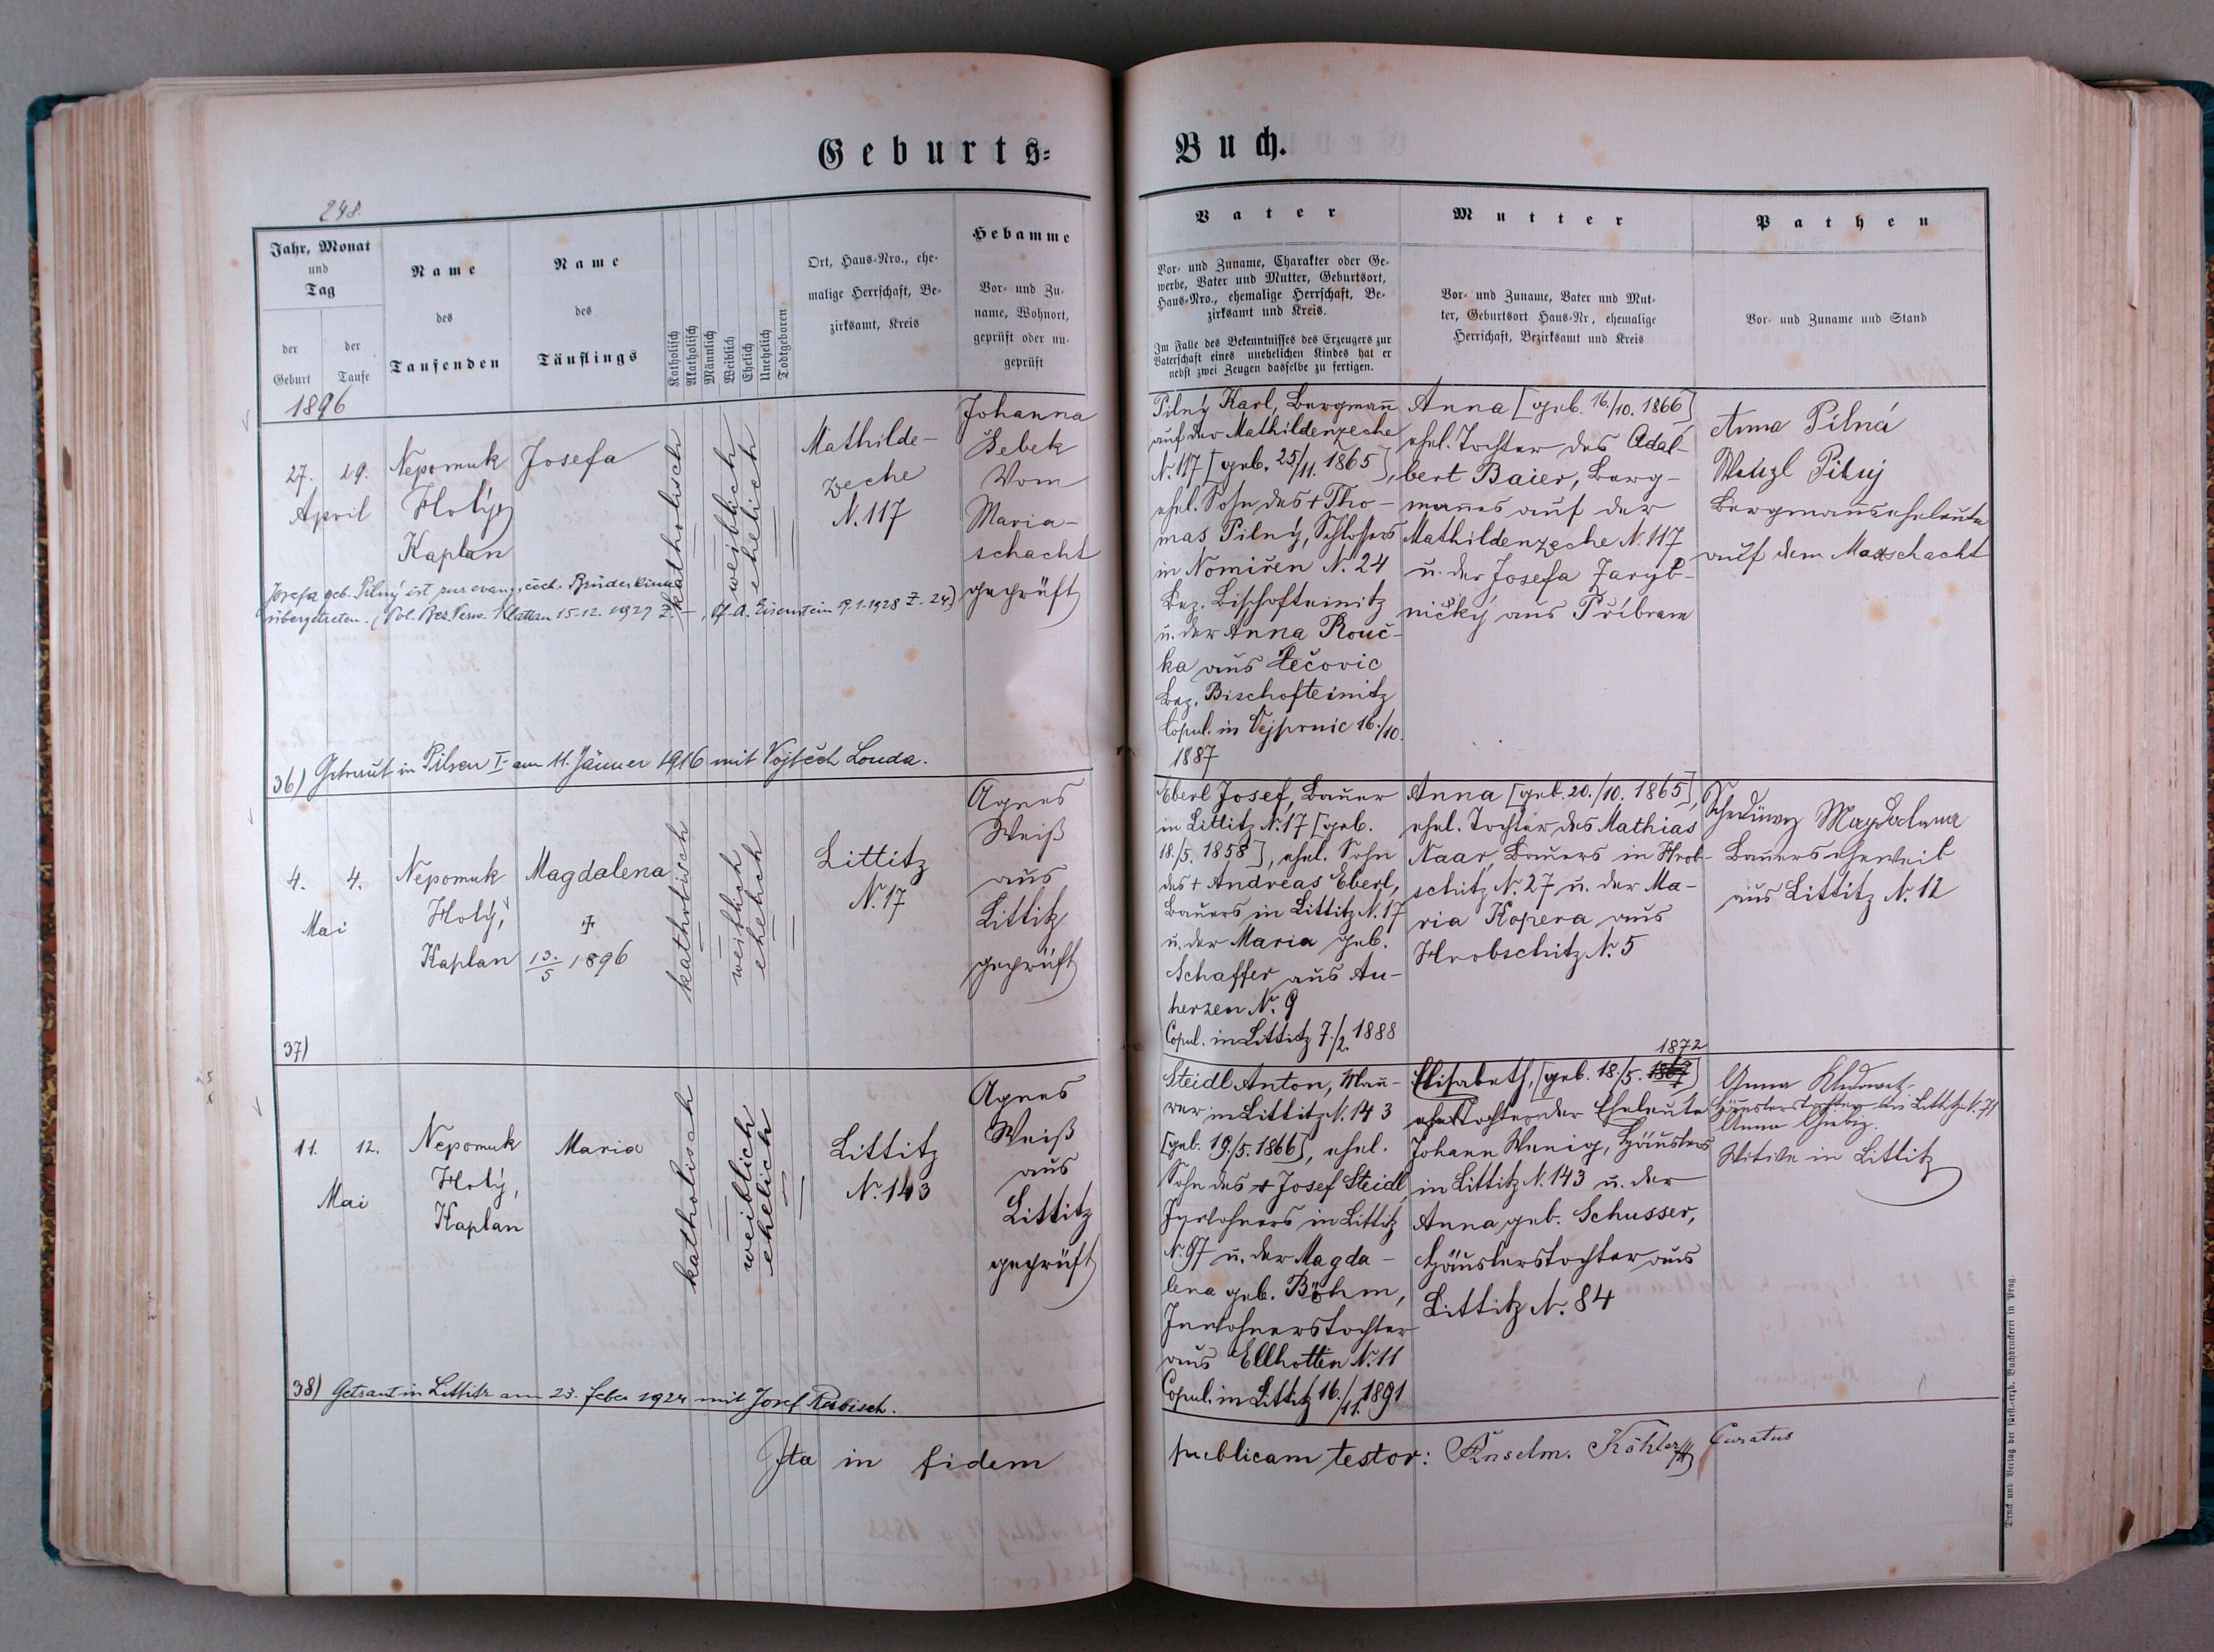 Geburts-
Buch.
248.
Jahr, Monat
und
Tag
der
Geburt
der
Taufe
Name
des
Taufenden
Name
des
Täuflings
Katholisch
Akatholisch
Männlich
Weiblich
Ehelich
Unehelich
Todtgeboren
Ort, Haus-Nro., ehe-
malige Herrschaft, Be-
zirksamt, Kreis
Hebamme
Vor- und Zu-
name, Wohnort,
geprüft oder un-
geprüft
Vater
Vor- und Zuname, Charakter oder Ge-
werbe, Vater und Mutter, Geburtsort,
Haus-Nro., ehemalige Herrschaft, Be-
zirksamt und Kreis.
Im Falle des Bekenntnisses des Erzeugers zur
Vaterschaft eines unehelichen Kindes hat er
nebst zwei Zeugen dasselbe zu fertigen.
Mutter
Vor- und Zuname, Vater und Mut-
ter, Geburtsort Haus-Nr, ehemalige
Herrschaft, Bezirksamt und Kreis
Pathen
Vor- und Zuname und Stand
1896
27. 29.
April
Nepomuk
Holý,
Kaplan
Josefa
katholisch
weiblich
ehelich
Mathilde-
zeche
N. 117
Johanna
Šebek
Vom
Maria-
schacht
geprüft
Josefa geb. Pilný ist zur evang. čech. Brüderkirche
übergetreten. (Pol. Bez. Verw. Klattau 15-12. 1927 Z. —, Pf. A. Eisenstein 9.1.1928 Z. 24)
36) Getraut in Pilsen I am 11. Jänner 1916 mit Vojtěch Louda.
Pilný Karl, Bergmann
auf der Mathildenzeche
N. 117 [geb. 25/11. 1865],
ehel. Sohn des + Tho-
mas Pilný, Schlossers
in Nomiřen N. 24
Bez. Bischofteinitz
u. der Anna Rouč-
ka aus
Bez. Bischofteinitz
Copul. in Vejprnic 16./10.
1887
Anna [geb. 16./10. 1866]
ehel. Tochter des Adal-
bert Baier, Berg-
mannes auf der
Mathildenzeche N. 117
u. der Josefa Zaryb-
ničký aus Příbram
Anna Pilná
Wenzl Pilný
Bergmannseheleute
auf dem Maxschacht
4. 4.
Mai
Nepomuk
Holý,
Kaplan
Magdalena
+
13./5 1896
katholisch
weiblich
ehelich
Littitz
N. 17
Agnes
Weiß
aus
Littitz
geprüft
37)
Eberl Josef, Bauer
in Littitz N. 17 [geb.
18./5. 1858], ehel. Sohn
des + Andreas Eberl,
Bauers in Littitz N. 17
u. der Maria geb.
Schaffer aus Au-
herzen N. 9
Copul. in Littitz 7./2. 1888
Anna [geb. 20./10. 1865],
ehel. Tochter des Mathias
Naar, Bauers in Hrob-
schitz N. 27 u. der Ma-
ria Kopera aus
Hrobschitz N. 5
Magdalena
Bauerseheweib
aus Littitz N. 12
11. 12.
Mai
Nepomuk
Holý,
Kaplan
Maria
katholisch
weiblich
ehelich
Littitz
N. 143
Agnes
Weiß
aus
Littitz
geprüft
38) Getraut in Littitz am 23. Feber 1924 mit Josef
Steidl Anton, Mau-
rer in Littitz N. 143
[geb. 19./5. 1866], ehel.
Sohn des + Josef Steidl
Inwohners in Littitz
N. 97 u. der Magda-
lena geb. Böhm,
Inwohnerstochter
aus Ellhotten N. 11
Copul. in Littitz 16./11. 1891
1872
Elisabeth, [geb. 18./5.
ehel. Tochter der Eheleute
Johann Wenig, Häuslers
in Littitz N. 143 u. der
Anna geb. Schusser,
Häuslerstochter aus
Littitz N. 84
Anna
Häuslerstochter aus Littitz N. 71
Anna
Witwe in Littitz
Ita in fidem
publicam testor: Anselm. Köhler Curatus
Druck und Verlag der fürst.-erzb. Buchdruckerei in Prag.